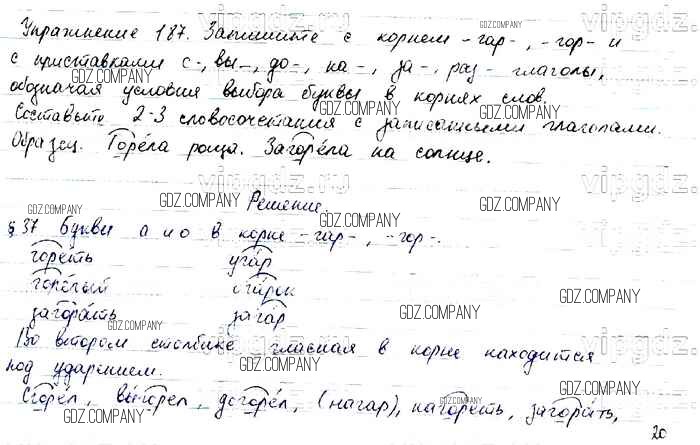 Упражнение 187. Запишите с корнем -гар-, -гор- и
с приставками с-, вы-, до-, на-, за-, раз- глаголы,
обозначая условия выбора буквы в корнях слов.
Составьте 2-3 словосочетания с записанными глаголами.
Образец. Горела роща. Загорела на солнце.
Решение.
§ 37 Буквы а и о в корне -гар-, -гор-.
гореть угар
горелый огарок
загорать загар
Во втором столбике гласная в корне находится
под ударением.
Сгорел, выгорел, догорел, (нагар), нагореть, загорать,
20
vipgdz.ru
GDZ.COMPANY